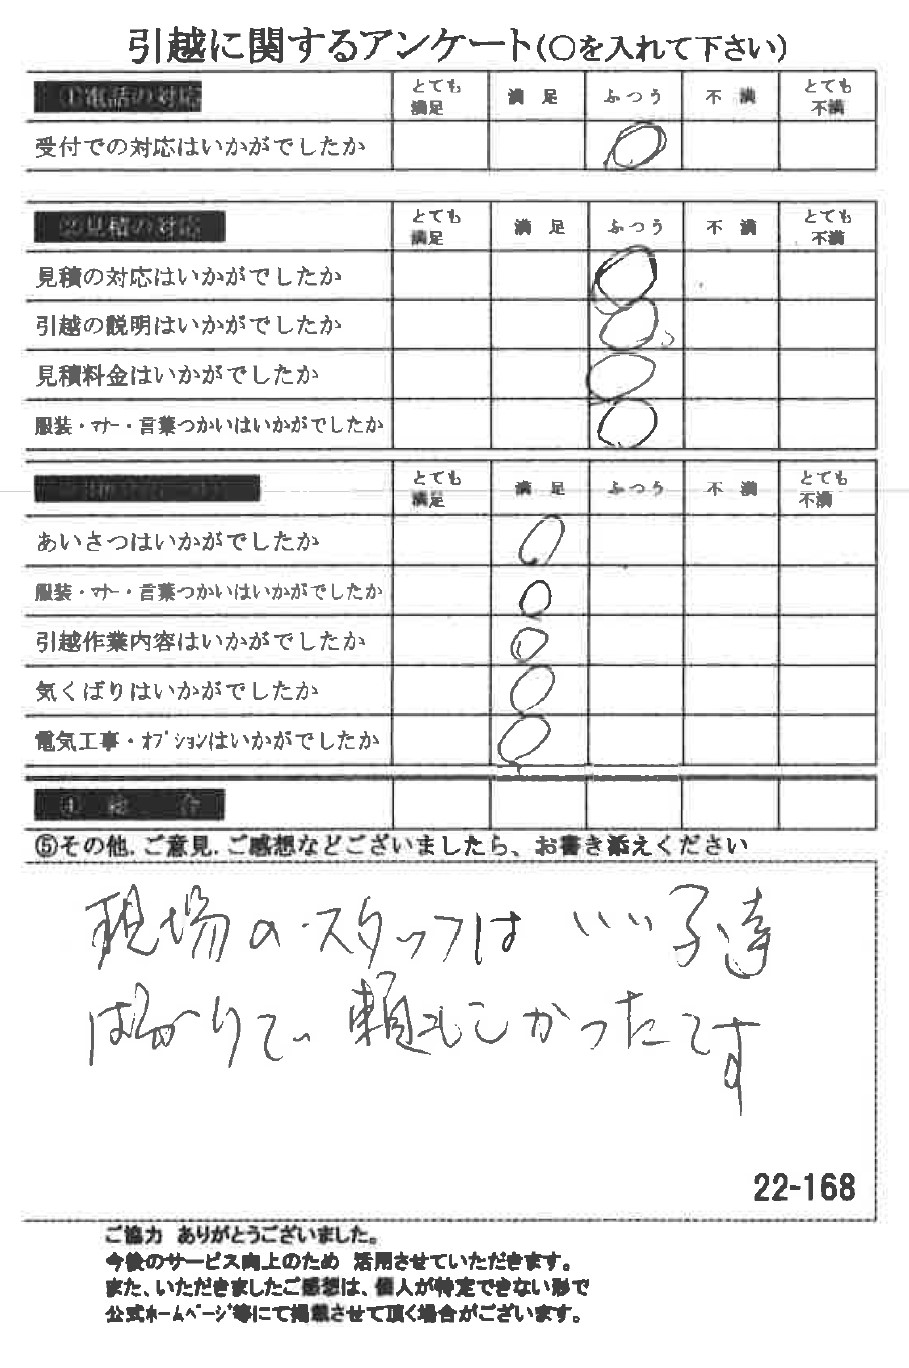 引越に関するアンケート(○を入れて下さい)
①電話の対応 とても満足 満足 ふつう 不満 とても不満
受付での対応はいかがでしたか
②見積の対応 とても満足 満足 ふつう 不満 とても不満
見積の対応はいかがでしたか
引越の説明はいかがでしたか
見積料金はいかがでしたか
服装・マナー・言葉つかいはいかがでしたか
とても満足 満足 ふつう 不満 とても不満
あいさつはいかがでしたか
服装・マナー・言葉つかいはいかがでしたか
引越作業内容はいかがでしたか
気くばりはいかがでしたか
電気工事・オプションはいかがでしたか
④総合
⑤その他.ご意見.ご感想などございましたら、お書き添えください
現場のスタッフは いい子達
ばかりで 頼もしかったです
22-168
ご協力 ありがとうございました。
今後のサービス向上のため 活用させていただきます。
また、いただきましたご感想は、個人が特定できない形で
公式ホームページ等にて掲載させて頂く場合がございます。